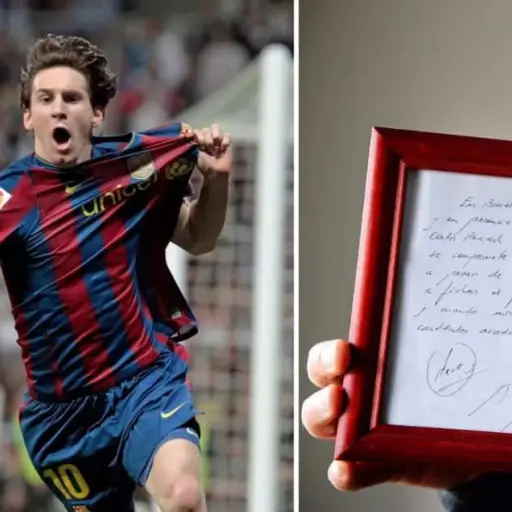 unicef
10
En Barce
y en presencia
Carlos Rexach
se compromete
a pesar de
a fichar al
y cuando
cantidades acorda